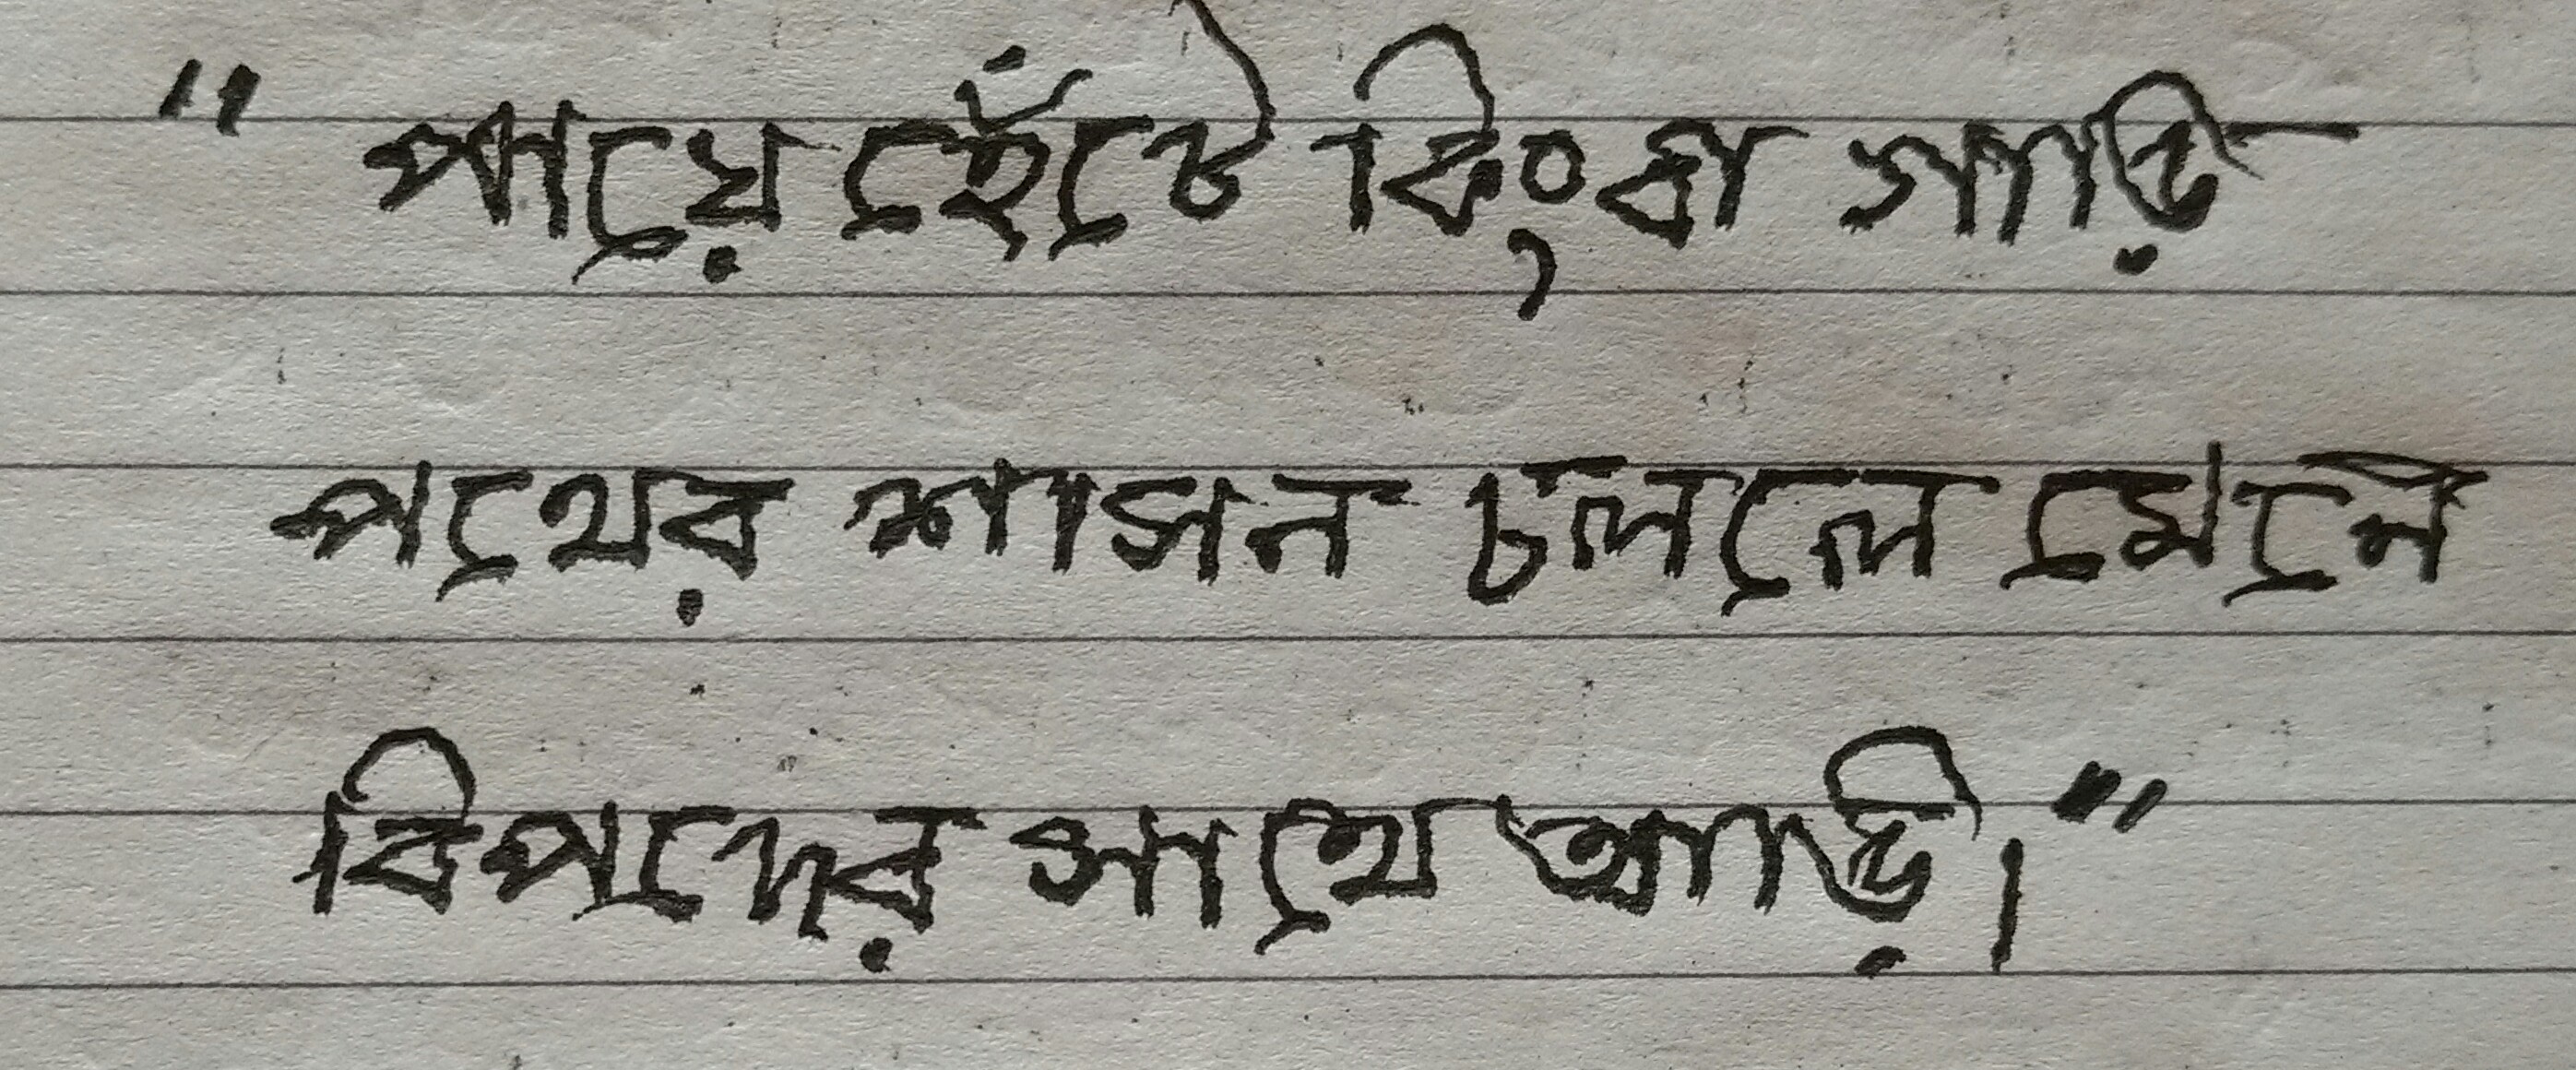 "পায়ে হেঁটে কিংবা গাড়ি
পথের শাসন চললে মেনে
বিপদের সাথে আড়ি।"